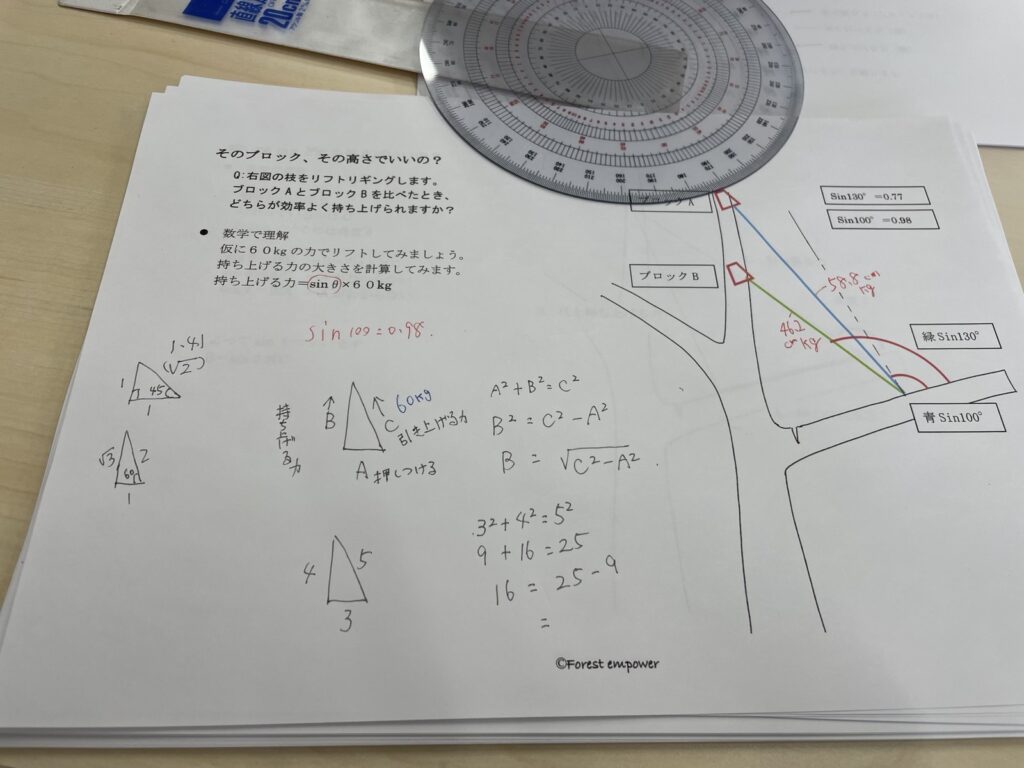 直線
20cm
そのブロック、その高さでいいの？
Q:右図の枝をリフトリギングします。
ブロックAとブロックBを比べたとき、
どちらが効率よく持ち上げられますか？
● 数学で理解
仮に６０kgの力でリフトしてみましょう。
持ち上げる力の大きさを計算してみます。
持ち上げる力=sinθ×６０kg
sin100=0.98.
1.41
(√2)
1
45
1
√3
2
60
1
持ち上げる力
B
60kg
C
引き上げる力
A 押しつける
A²+B²=C²
B²=C²-A²
B = √C²-A²
4
5
3
3²+4²=5²
9+16=25
16=25-9
=
Sin130°=0.77
Sin100°=0.98
ブロックB
58.8
kg
46.2
kg
緑Sin130°
青Sin100°
©Forest empower